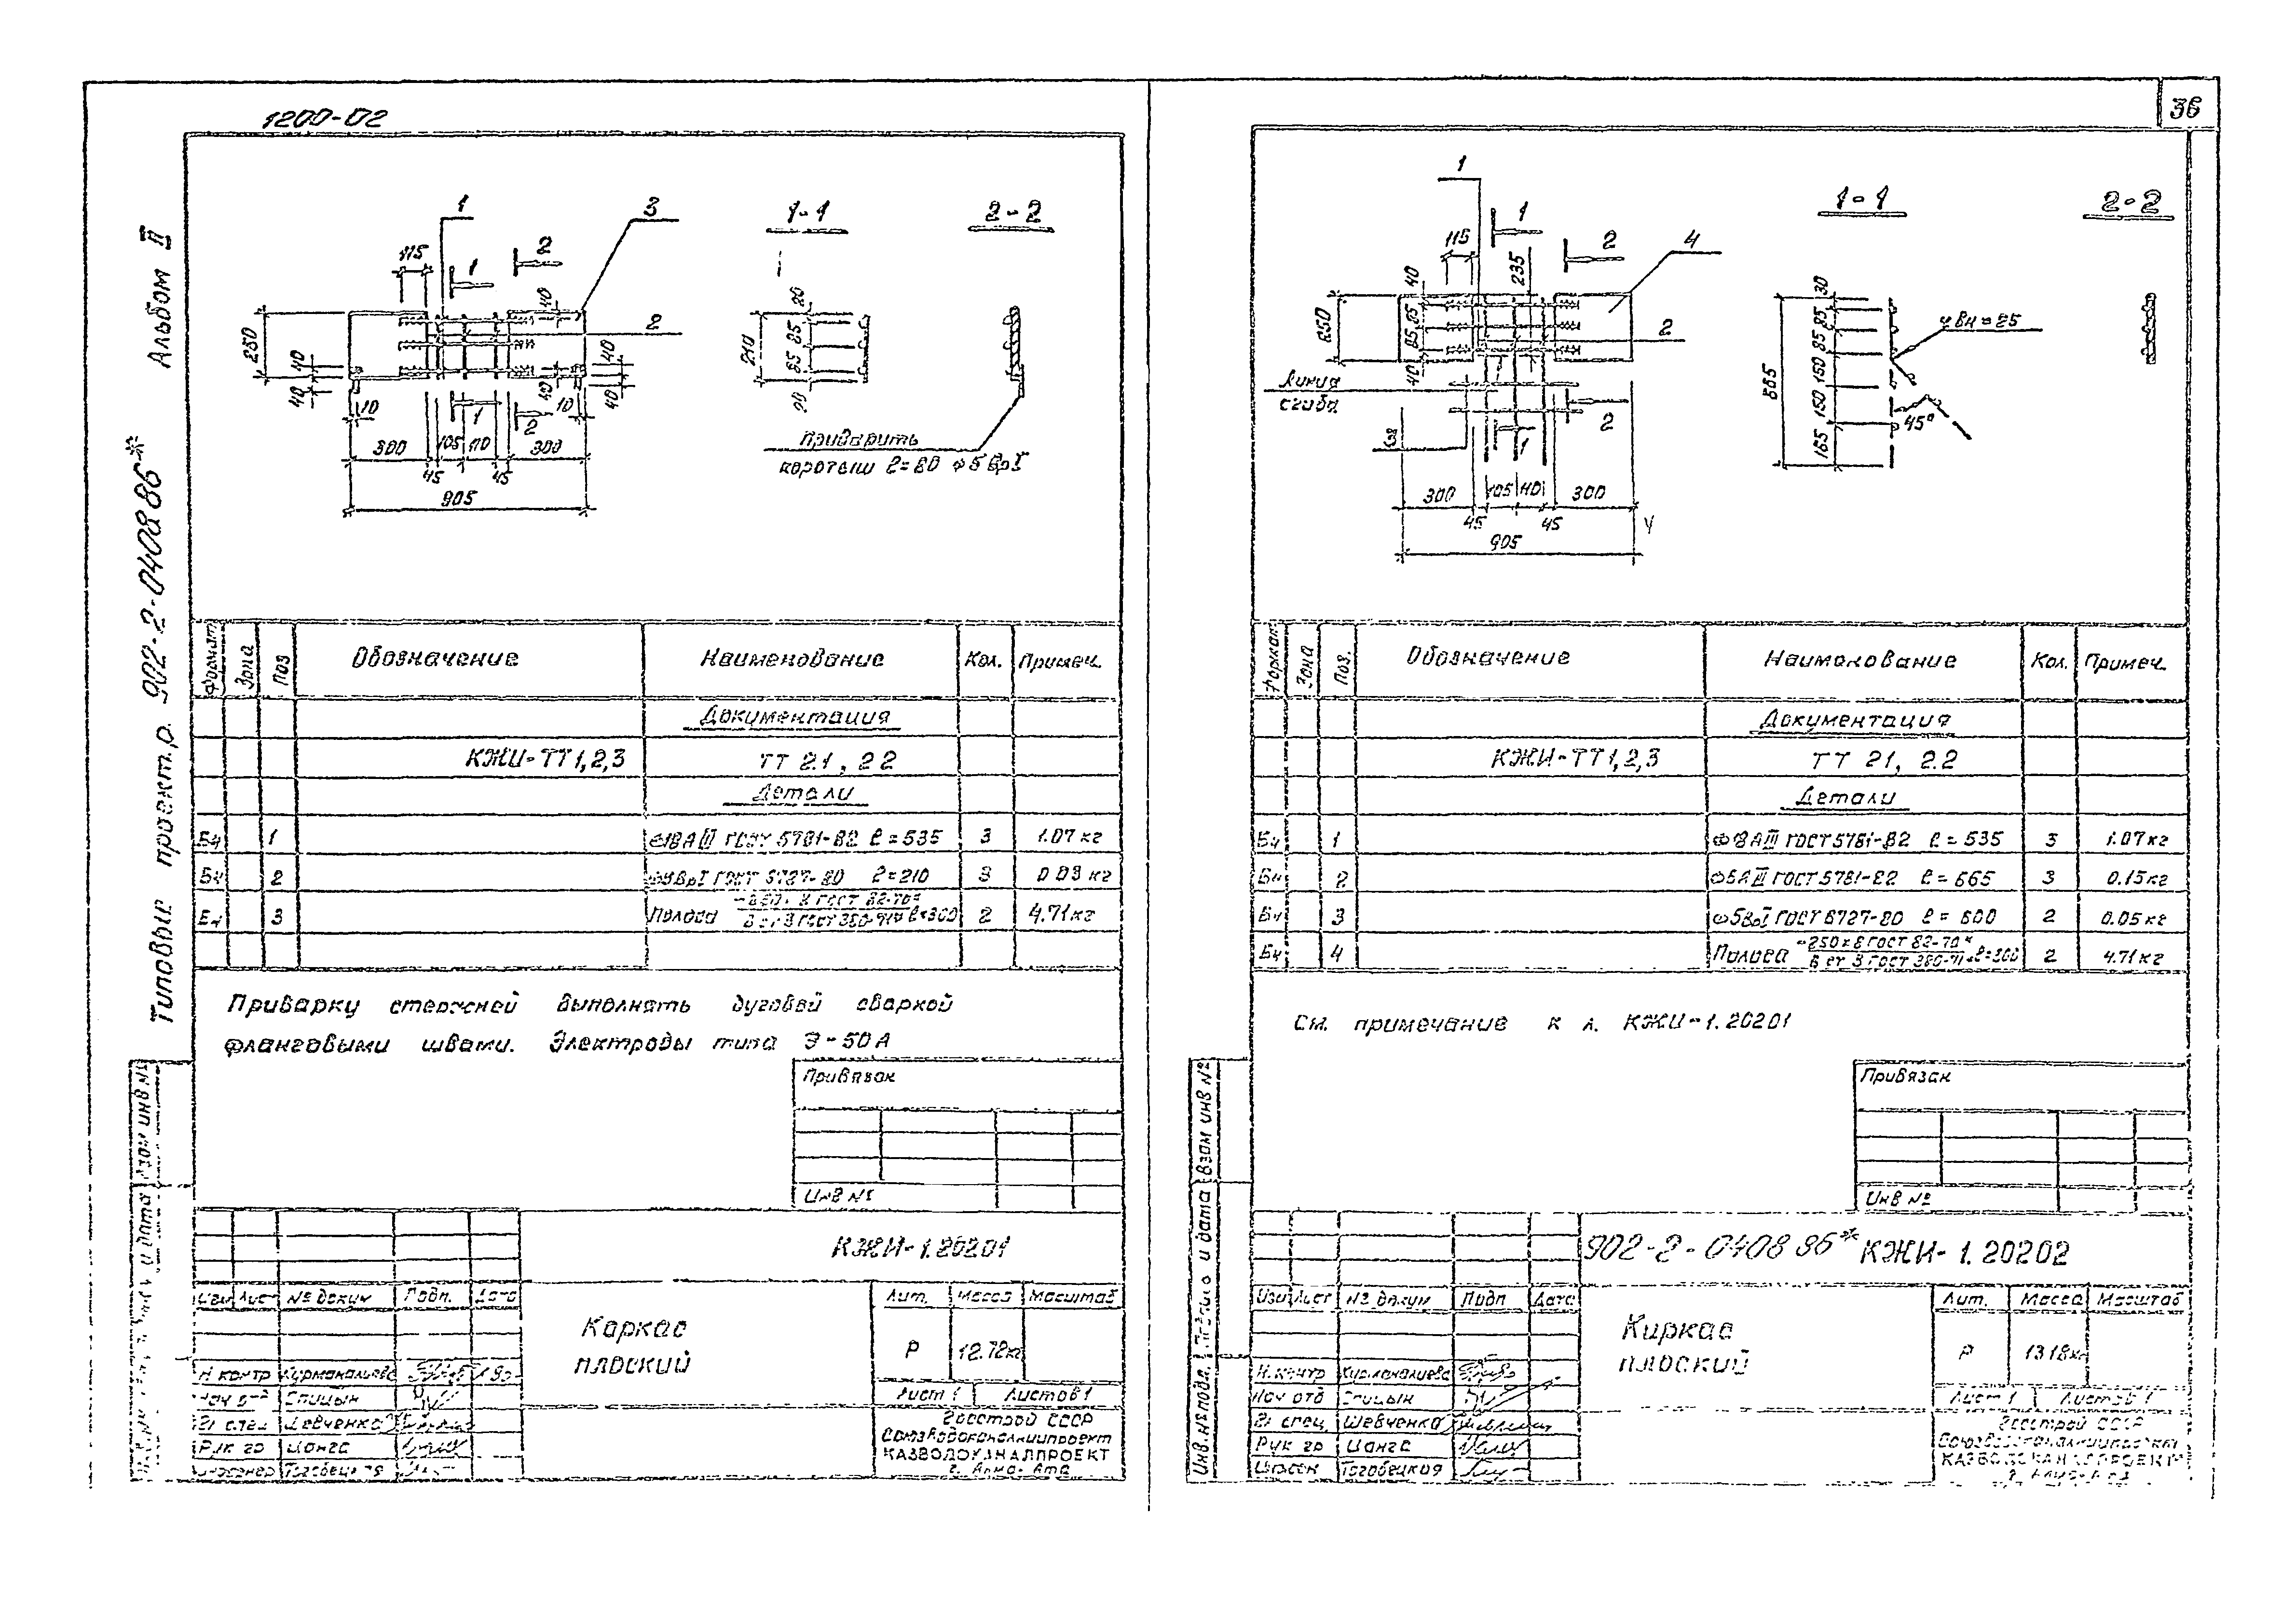 1200-02
36
Альбом II
Типовый проект.р. 902-2-0408 86*
1
3
1-1
2-2
2
115
1
40
2
250
40
40
40
40
40
10
1
2
10
300
105
110
300
45
45
905
20
85
210
85
20
Приварить
коротыш ℓ=80 ф5ВрI
Формат
Зона
Поз
Обозначение
Наименование
Кол.
Примеч.
Документация
КЖИ-ТТ1,2,3
ТТ 2.1, 2.2
Детали
Бч 1 ГОСТ 5781-82 ℓ=535 3 1.07 кг
Бч 2 ℓ=210 3
Бч 3 Полоса ℓ=300 2 4.71 кг
Приварку стержней выполнять дуговой сваркой
фланговыми швами. Электроды типа Э-50А
Привязан
Инв №
КЖИ-1.20201
Изм Лист № докум Подп. Дата
Каркас
плоский
Лит. Масса Масштаб
Р 12.72кг
Лист 1 Листов 1
Н контр Курманалиева
Нач отд Спицын
Гл спец Шевченко
Рук гр Цонга
Госстрой СССР
Союзводоканалниипроект
КАЗВОДОКАНАЛПРОЕКТ
г. Алма-Ата
1
1-1
2-2
115
1
2
4
235
40
85
85
40
250
2
Линия
сгиба
2
1
300
105
110
300
45
45
905
30
85
85
150
150
165
665
45°
Формат
Зона
Поз.
Обозначение
Наименование
Кол.
Примеч.
Документация
КЖИ-ТТ1,2,3
ТТ 2.1, 2.2
Детали
Бч 1 ГОСТ 5781-82 ℓ=535 3 1.07 кг
Бч 2 ГОСТ 5781-82 ℓ=665 3 0.15 кг
Бч 3 ф5ВрI ГОСТ 6727-80 ℓ=600 2 0.05 кг
Бч 4 Полоса -250х8 ГОСТ 82-70* / В ст 3 ГОСТ 380-71* ℓ=300 2 4.71 кг
См. примечание к л. КЖИ-1.20201
Привязан
Инв №
902-2-0408 86* КЖИ-1.20202
Изм Лист № докум Подп Дата
Каркас
плоский
Лит. Масса Масштаб
Р 13.18кг
Лист 1 Листов 1
Н.контр Курманалиева
Нач отд Спицын
Гл спец Шевченко
Рук гр Цонга
Госстрой СССР
Союзводоканалниипроект
КАЗВОДОКАНАЛПРОЕКТ
г. Алма-Ата
Инв.№ подл.
Подпись и дата
Взам инв №